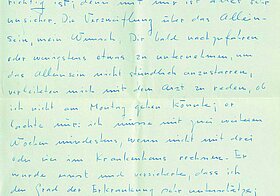 richtig ist, denn mit mir ist alles sehr
unsicher. Die Verzweiflung über das Allein-
sein, mein Wunsch, Dir bald nachzufahren
oder wenigstens etwas zu unternehmen, um
das Alleinsein nicht stündlich anzustarren,
verleiteten mich mit dem Arzt zu reden, ob
ich nicht am Montag gehen könnte; er
sagte mir: ich müsse mit zwei weiteren
Wochen mindestens, wenn nicht mit drei
oder vier im Krankenhaus rechnen. Er
wurde ernst und versicherte, dass ich
den Grad der Erkrankung sehr unterschätze;